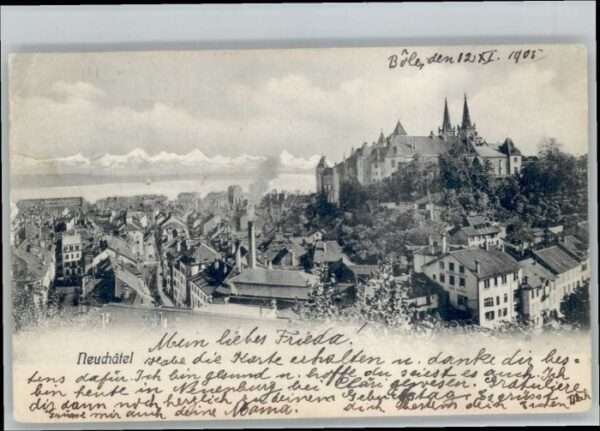 Bôle, den 12 XI. 1905
Neuchâtel
Mein liebes Frieda!
Habe die Karte erhalten u. danke dir bes-
tens dafür. Ich bin gesund u. hoffe du seiest es auch. Ich
bin heute in Neuenburg bei Cläri gewesen. Gratuliere
dir dann noch herzlich zu deinem Geburtstag. Es grüsst
dich bestens dein
Grüsse mir auch deine Mama.